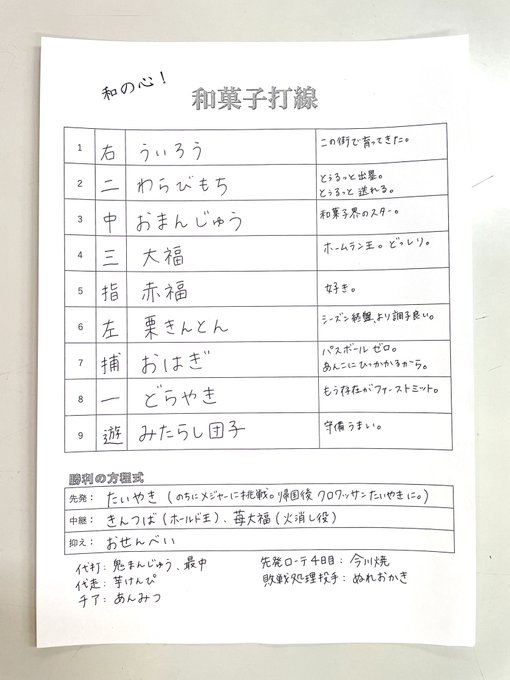 和の心!
和菓子打線
1 右 ういろう この街で育ってきた。
2 二 わらびもち とぅるっと出塁。
とぅるっと送れる。
3 中 おまんじゅう 和菓子界のスター。
4 三 大福 ホームラン王。どっしり。
5 指 赤福 好き。
6 左 栗きんとん シーズン終盤、より調子良い。
7 捕 おはぎ パスボールゼロ。
あんこにひっかかるから。
8 一 どらやき もう存在がファーストミット。
9 遊 みたらし団子 守備うまい。
勝利の方程式
先発: たいやき(のちにメジャーに挑戦。帰国後クロワッサンたいやきに。)
中継: きんつば(ホールド王)、苺大福(火消し役)
抑え: おせんべい
代打: 鬼まんじゅう、最中 先発ローテ4日目: 今川焼
代走: 芋けんぴ 敗戦処理投手: ぬれおかき
チア: あんみつ